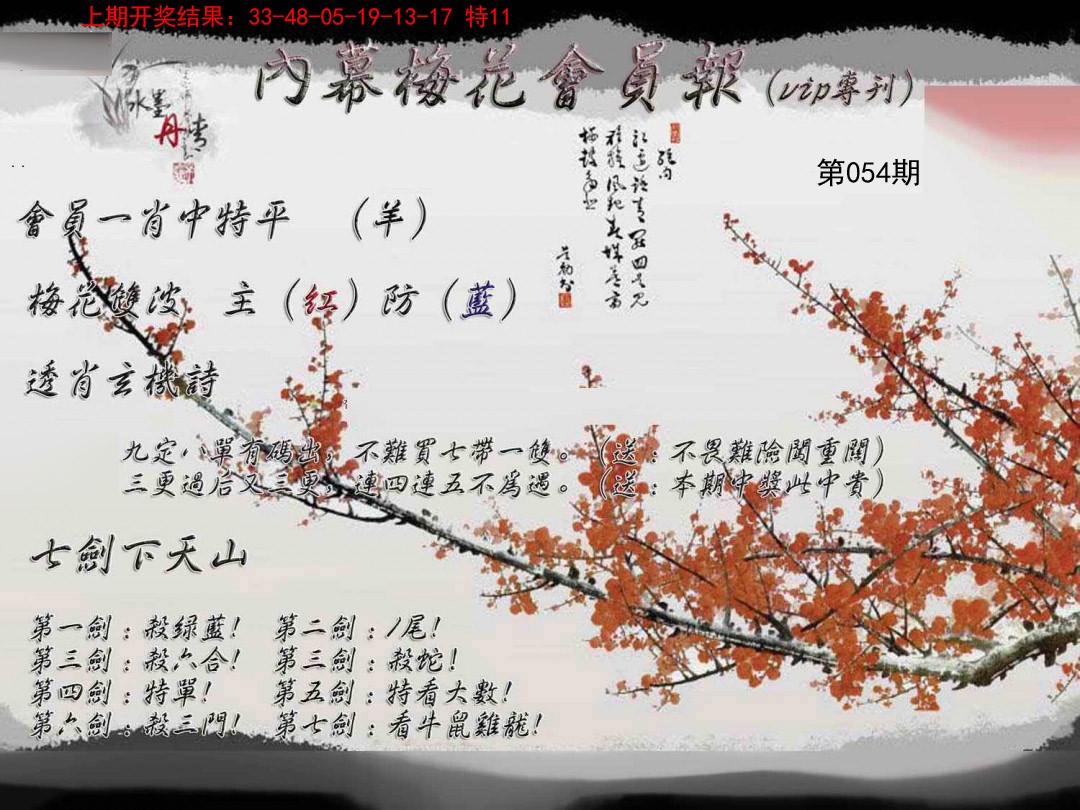 上期开奖结果：33-48-05-19-13-17 特11
內幕梅花會員報(vip專刊)
水墨
丹青
第054期
會員一肖中特平 （羊）
梅花雙波 主（紅）防（藍）
透肖玄機詩
九定八單有碼出，不難買七帶一雙。（送：不畏難險闖重關）
三更過后又三更，連四連五不爲過。（送：本期中獎此中貴）
七劍下天山
第一劍：殺绿藍！ 第二劍：1尾！
第三劍：殺六合！ 第三劍：殺蛇！
第四劍：特單！ 第五劍：特看大數！
第六劍：殺三門！ 第七劍：看牛鼠雞龍！